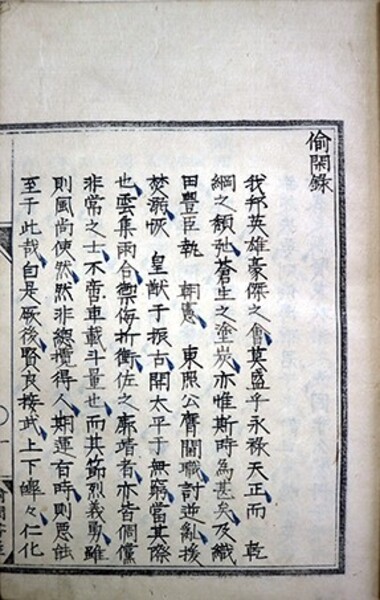 偷閑錄
我邦英雄豪傑之會莫盛乎永祿天正而 乾
綱之頽弛蒼生之塗炭亦惟斯時為甚矣及織
田豐臣執 朝憲 東照公膺關職討逆亂援
焚溺恢 皇猷于振古開太平于無窮當其際
也雲集雨合禦侮折衝佐之廓靖者亦皆倜儻
非常之士不啻車載斗量也而其節烈義勇雖
則風尚使然然非總攬得人期運有時則惡能
至于此哉自是厥後賢良接武上下皞々仁化